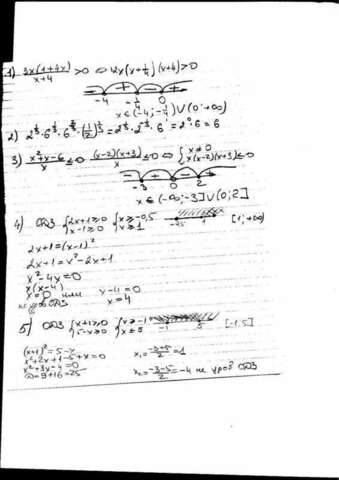 1) 3x(1+4x)/x+4 >0 ⇔ 12x(x+1/4)(x+4)>0
− + − +
-4 -1/4 0
x∈(-4;-1/4)∪(0;+∞)
3) x²+x-6/x ≤0 (x-2)(x+3)/x ≤0 ⇔ { x≠0 x(x-2)(x+3)≤0
-3 0 2
x∈(-∞;-3]∪(0;2]
4) ОДЗ { 2x+1≥0 x-1≥0 { x≥-0,5 x≥1 [1;+∞)
2x+1=(x-1)²
2x+1=x²-2x+1
x²-4x=0
x(x-4)
x=0 или x-4=0
x=4
5) ОДЗ { x+1≥0 5-x≥0 { x≥-1 x≤5 -1 5 [-1;5]
(x+1)²=5-x
x²+2x+1-5+x=0
x²+3x-4=0
D=9+16=25
x₁=-3+5/2=1
x₂=-3-5/2=-4 не удов ОДЗ